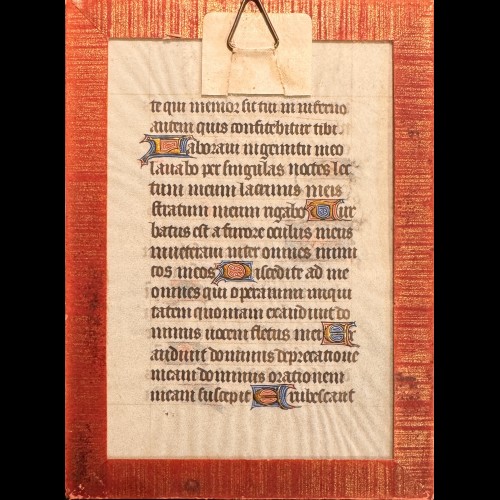 te qui memor sit tui in inferno
autem quis confitebitur tibi
Laboravi in gemitu meo
lavabo per singulas noctes lec
tum meum lacrimis meis
stratum meum rigabo Tur
batus est a furore oculus meus
inveteravi inter omnes inimi
cos meos Discedite ad me
omnes qui operamini iniqui
tatem quoniam exaudivit do
minus vocem fletus mei Ex
audivit dominus deprecatione
meam dominus orationem
meam suscepit Erubescant